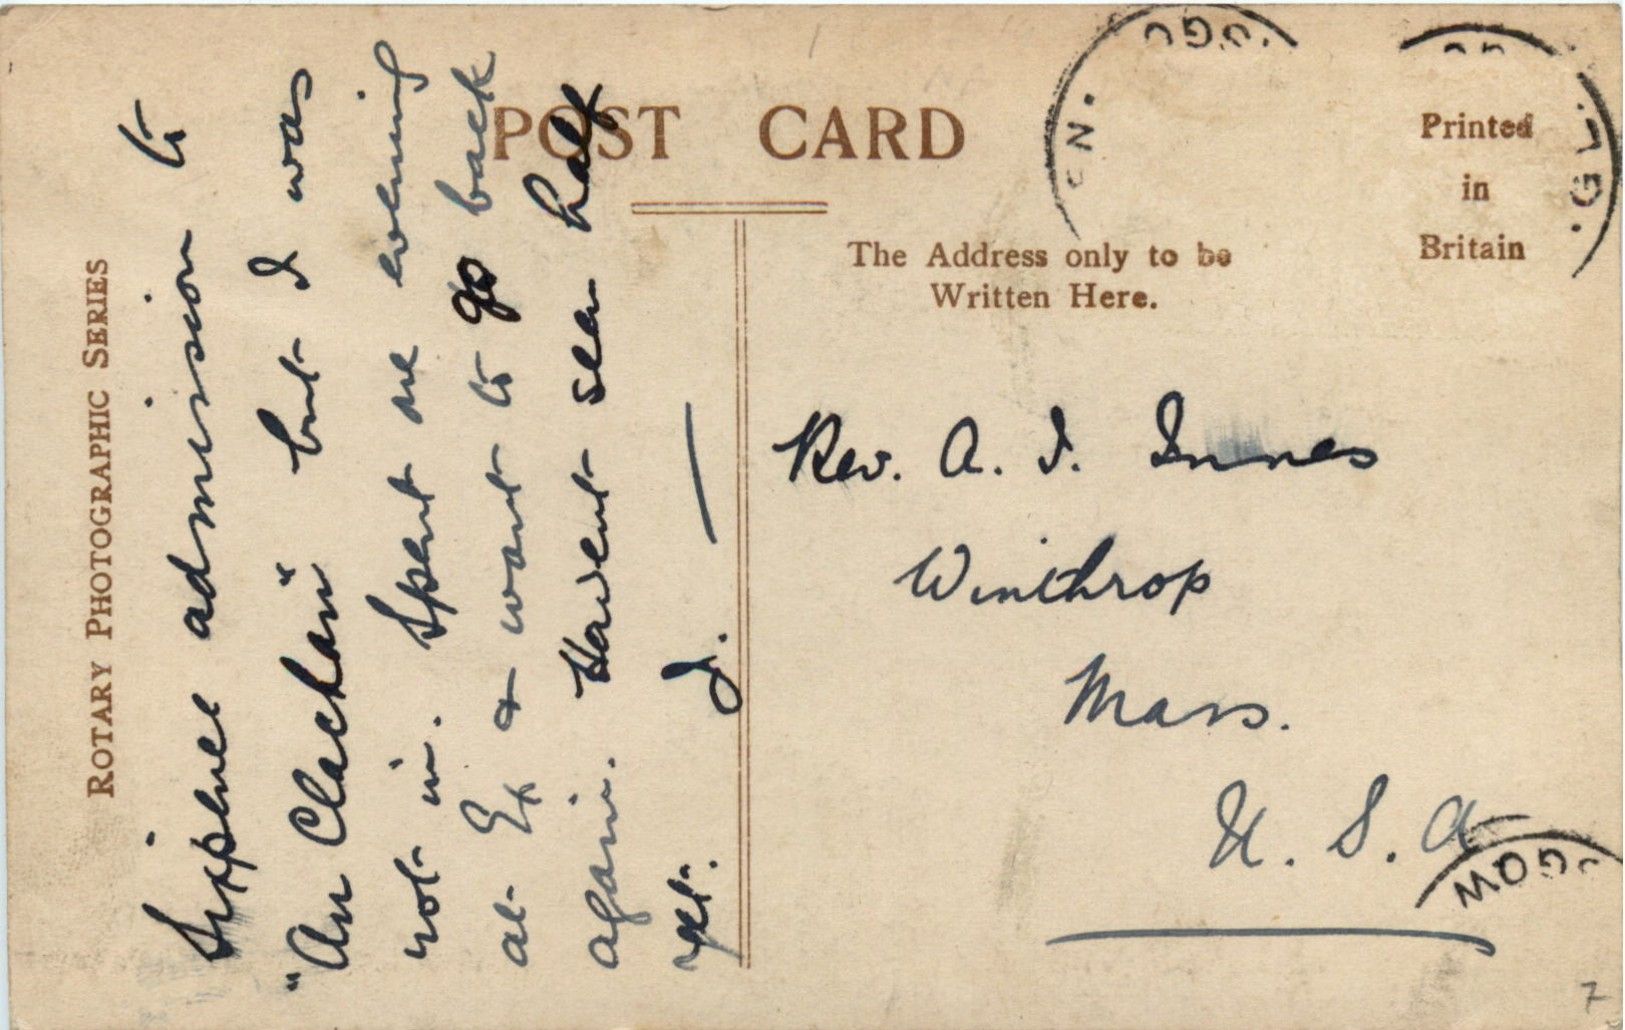 POST CARD
ROTARY PHOTOGRAPHIC SERIES
The Address only to be
Written Here.
Printed
in
Britain
Sixpence admission to
"An Clachan" but I was
not in. Spent one evening
at Ex & want to go back
again. Havent seen half
yet. J. —
Rev. A. J. Innes
Winthrop
Mass.
U. S. A
GOW
7